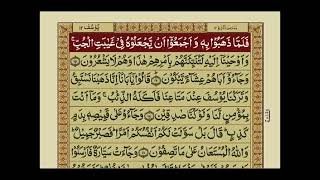 یُوسُف ١٢
فَلَمَّا ذَهَبُوْا بِهٖ وَ اَجْمَعُوْۤا اَنْ یَّجْعَلُوْهُ فِیْ غَیٰبَتِ الْجُبِّ ۚ
وَ اَوْحَیْنَاۤ اِلَیْهِ لَتُنَبِّئَنَّهُمْ بِاَمْرِهِمْ هٰذَا وَ هُمْ لَا یَشْعُرُوْنَ
وَ جَآءُوْۤ اَبَاهُمْ عِشَآءً یَّبْكُوْنَ قَالُوْا یٰۤاَبَانَاۤ اِنَّا ذَهَبْنَا نَسْتَبِقُ
وَ تَرَكْنَا یُوْسُفَ عِنْدَ مَتَاعِنَا فَاَكَلَهُ الذِّئْبُ ۚ وَ مَاۤ اَنْتَ
بِمُؤْمِنٍ لَّنَا وَ لَوْ كُنَّا صٰدِقِیْنَ وَ جَآءُوْ عَلٰى قَمِیْصِهٖ بِدَمٍ
كَذِبٍ ؕ قَالَ بَلْ سَوَّلَتْ لَكُمْ اَنْفُسُكُمْ اَمْرًا ؕ فَصَبْرٌ جَمِیْلٌ ؕ
وَ اللّٰهُ الْمُسْتَعَانُ عَلٰى مَا تَصِفُوْنَ وَ جَآءَتْ سَیَّارَةٌ فَاَرْسَلُوْا